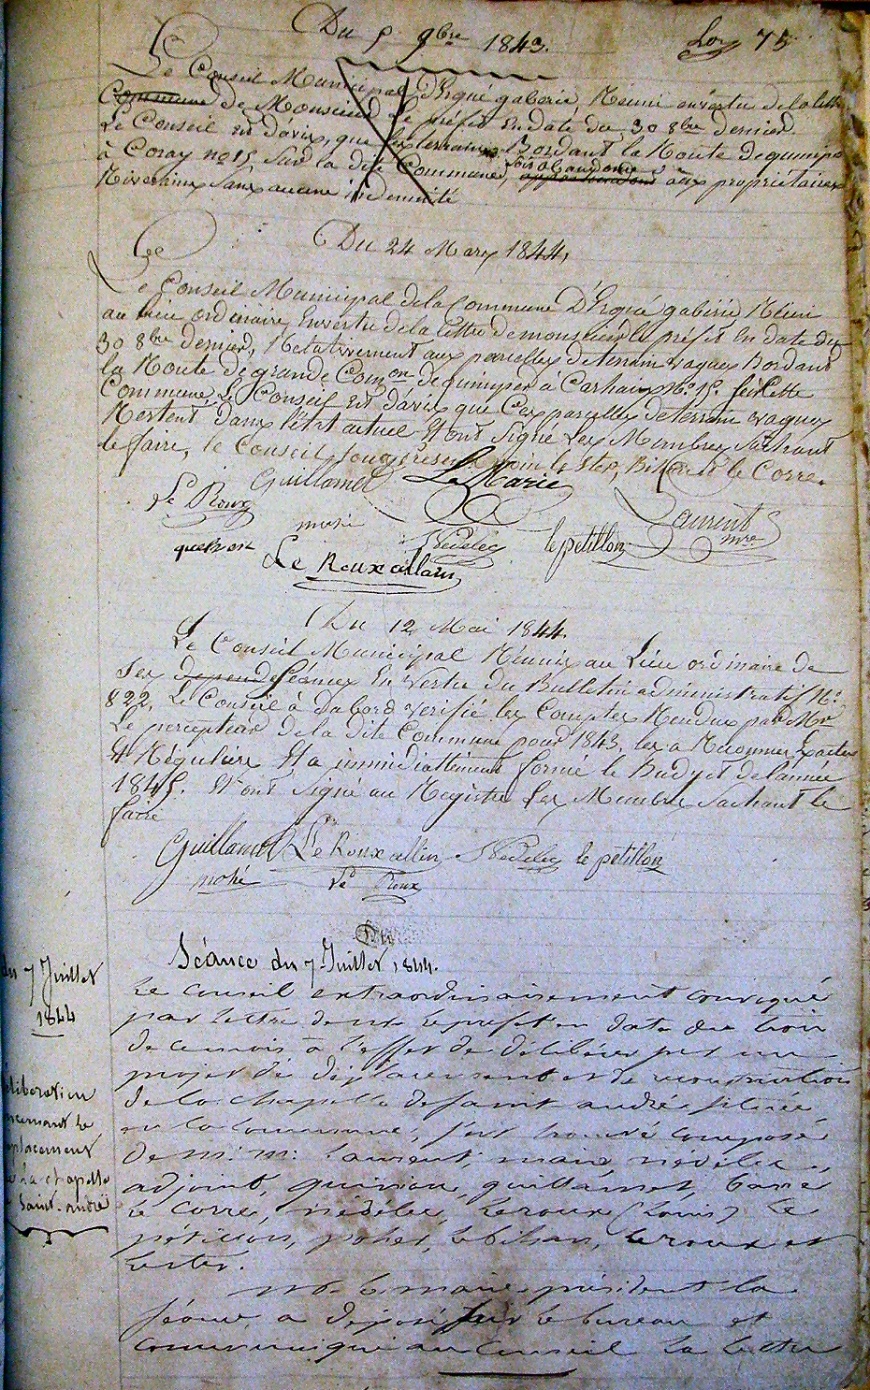 Du 5 9bre 1843.
75
Le Conseil Municipal d'Ergué gaberic, Réuni en vertu de la lettre
Commune de Monsieur Le préfet En date du 30 8bre dernier.
Le Conseil est d'avis, que les terrains Bordant la Route de quimper
à Coray no 15, Sur la dite Commune, soit abandonné aux propriétaires
Riverains Sans aucune indemnité
Du 24 Mars 1844,
Le
Le Conseil Municipal de la Commune D'Ergué gaberic Réuni
au lieu ordinaire, En vertu de la lettre de monsieur le préfet En date du
30 8bre dernier, Relativement aux parcelles de terrain vagues Bordant
la Route de grande Comon de quimper à Carhaix No 15. Sur cette
Commune, Le Conseil Est d'avis que Ces parcelles de terrain vagues
Restent Dans l'état actuel. Et ont Signé Les Membres Sachant
le faire, le Conseil le Ster, Bihan et le Corre.
Guillamet Le Marie
Le Roux Laurent
mre
Nédelec le petillon
Le Roux allain
Du 12 Mai 1844.
Le Conseil Municipal Réunis au Lieu ordinaire de
Ses Séances En Vertu du Bulletin administratif No
822, Le Conseil à d'abord verifié les Comptes Rendus par Mr
Le percepteur de la dite Commune pour 1843, les a Reconnus Exactes
Et Régulière Et a immidiattement formé le Budget de l'année
1845. Et ont Signé au Registre Les Membres Sachant le
faire
Guillamet Le Roux allin Nédelec le petillon
Le Roux
Du
Séance du 7 Juillet 1844.
du 7 Juillet
1844
Le conseil extraordinairement convoqué
par lettre de Mr Le préfet en date du trois
de ce mois à l'effet de délibérer sur un
projet de déplacement et de reconstruction
de la chapelle de saint andré située
en la commune, s'est trouvé composé
de M. M. Laurent, maire, nédélec,
adjoint, quiniou, guillamet,
Le Corre, nédélec, Leroux (Louis) Le
pétillon, pohet, Le bihan, Leroux et
Lester.
éliberation
ncernant Le
placement
e La chapelle
Saint-andré
Mr. Le maire, président la
séance, a déposé sur le bureau et
communiqué au conseil la lettre